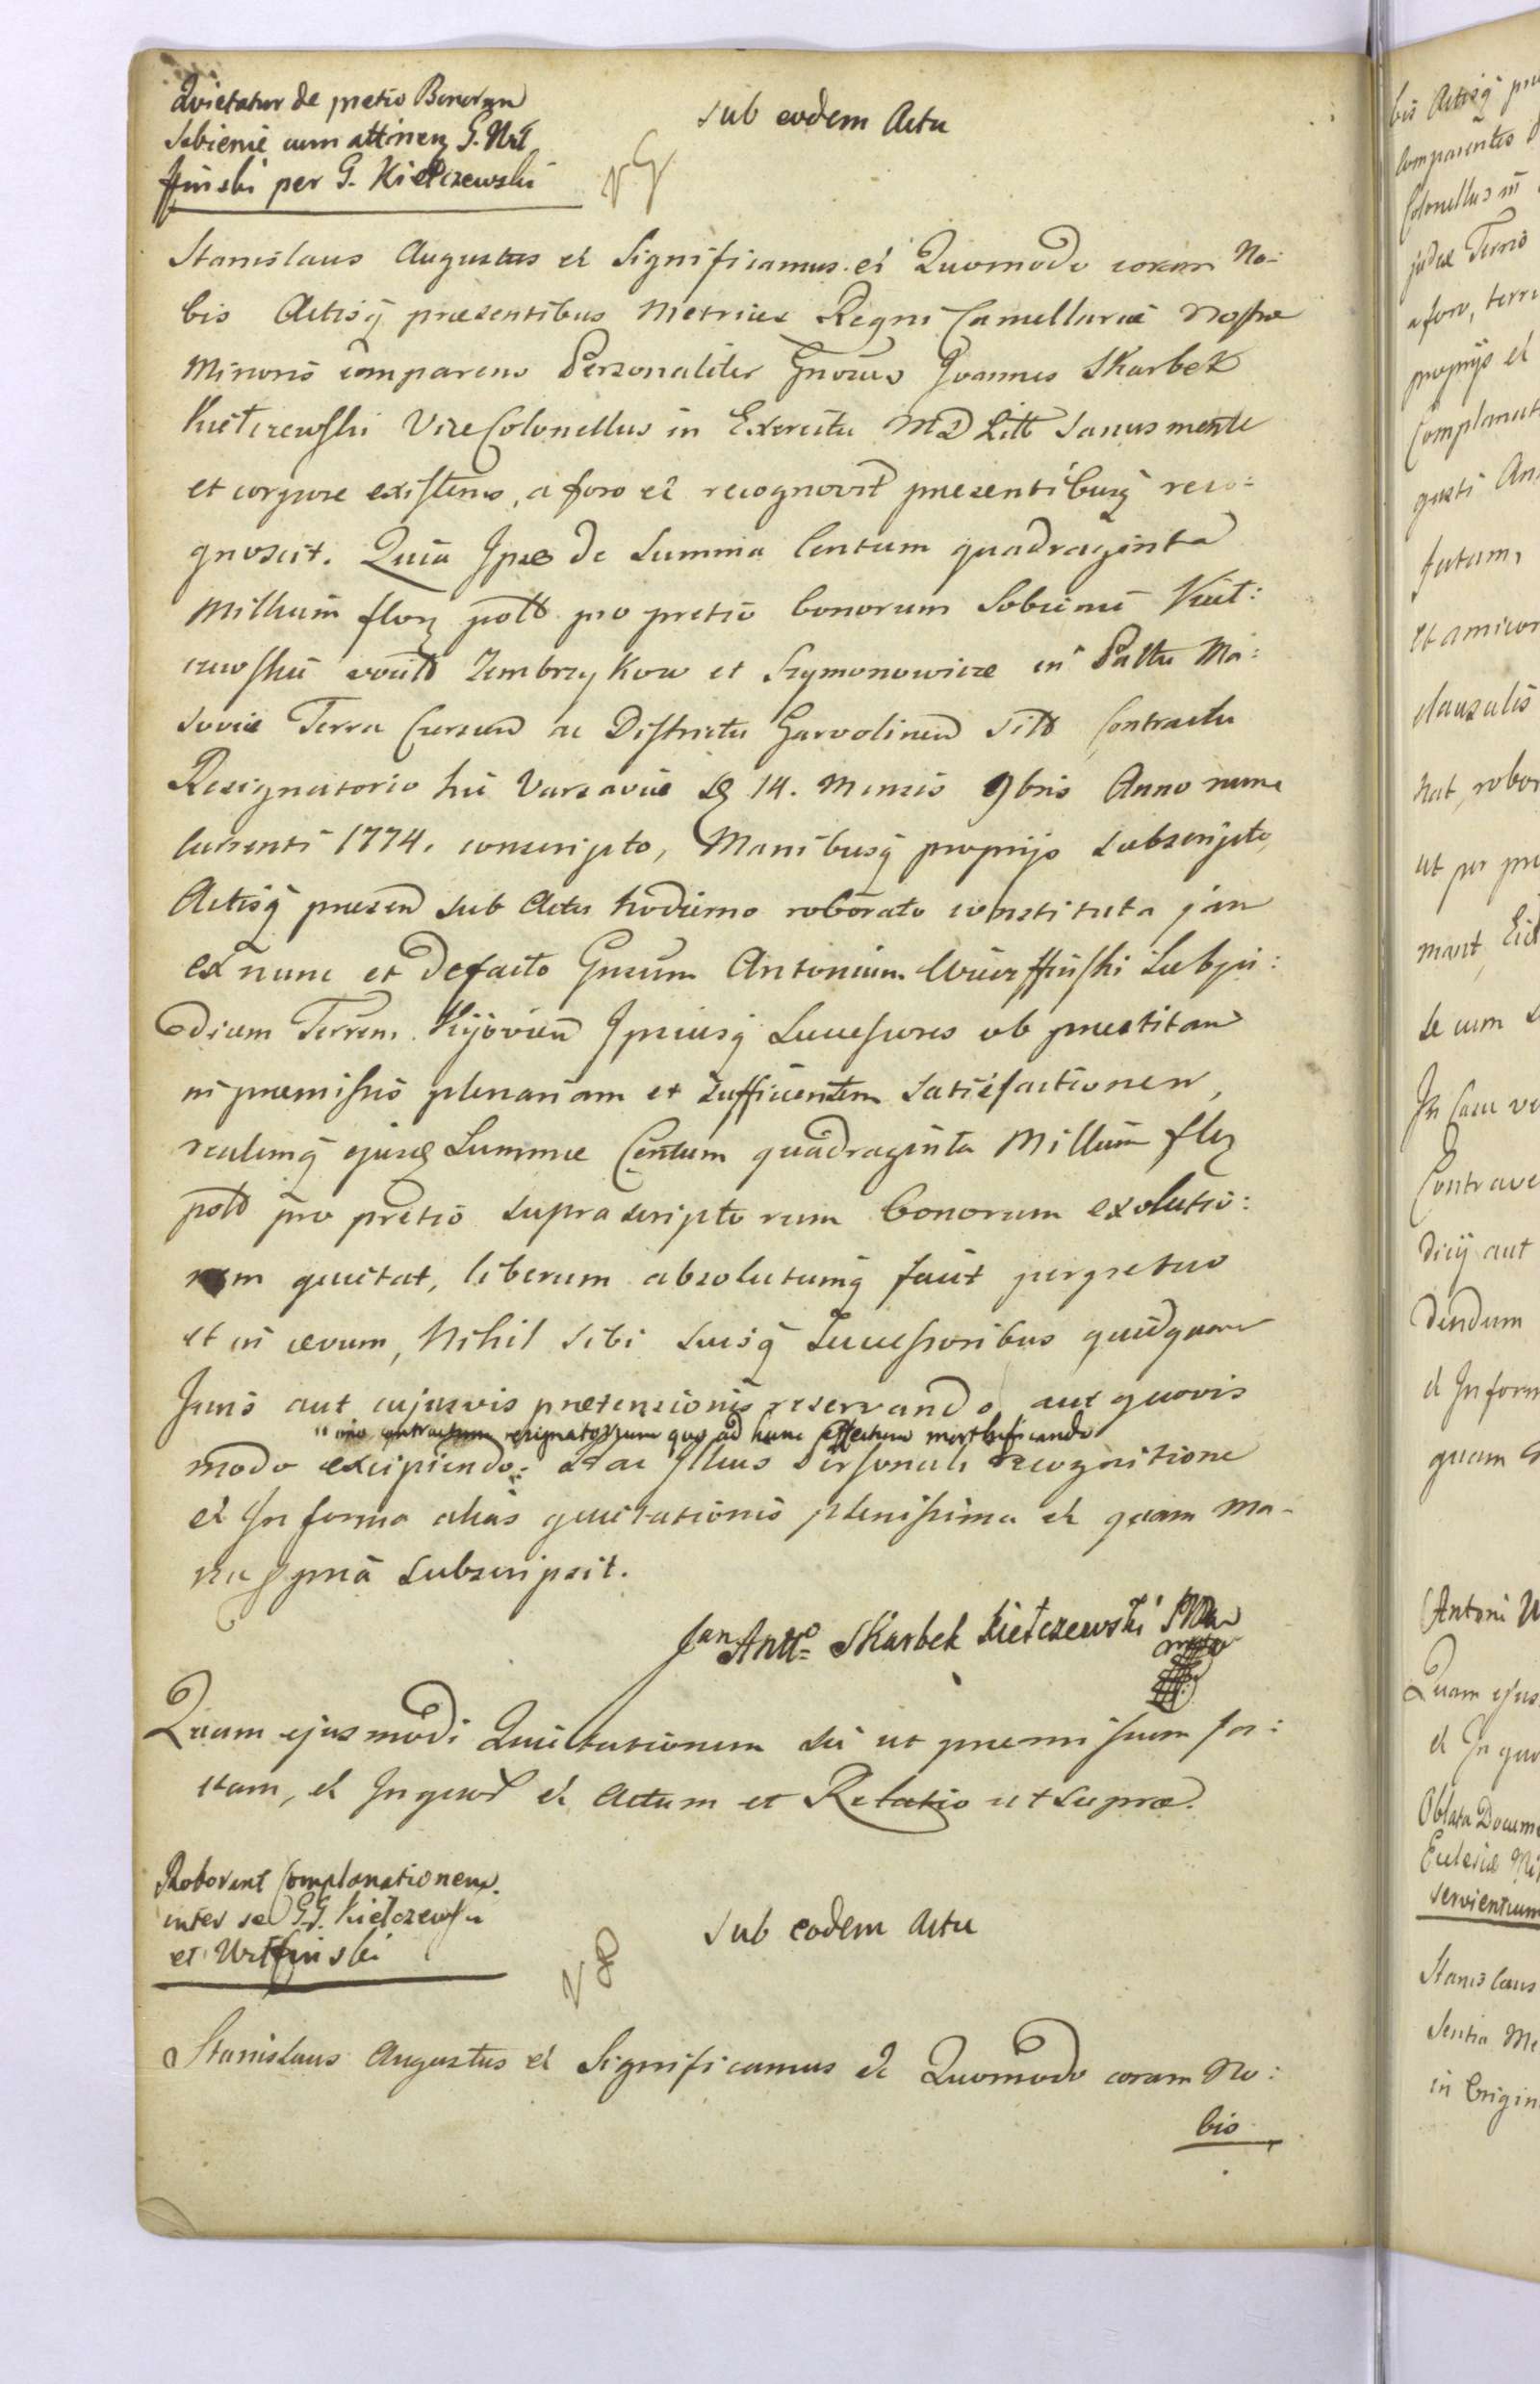 Quietatur de pretio Bonorum
Sobienie cum attinen G. Wił
ffinski per G. Kiełczewski
sub eodem Actu
Stanislaus Augustus et Significamus. et Quomodo coram No=
bis Actisq praesentibus Metrices Regni Cancellariae Nostrae
Minoris comparens Personaliter Gnosus Joannes Skarbek
Kiełczewski ViceColonellus in Exercitu M D Litt sanus mente
et corpore existens, a foro et recognovit praesentibusq reco=
gnoscit. Quia Ipse de Summa Centum quadraginta
Millium flor poll pro pretio bonorum Sobienie Kieł:
czewskie vocit Zembrzykow et Szymonowice in Pallttu Ma:
soviae Terra Cersen ac Districtu Garvolinen sitt Contractu
Resignatorio hic Varsaviae D 14. Mensis 9bris Anno nunc
currenti 1774. conscripto, Manibusq proprijs subscripto,
Actisq praesen sub Actu hodierno roborato constituta jam
ex nunc et Defacto Gnsum Antonium Subju:
dicem Terrem. Kijovien Ipsiusq Successores ob praestitam
in praemissis plenariam et sufficientem satisfactionem,
realemq ejusd Summae Centum quadraginta Millium flr
poll pro pretio suprascriptorum bonorum exolutio:
nem quietat, liberum absolutumq facit perpetuo
et in aevum, Nihil sibi suisq Successoribus quidquam
Juris aut cujusvis praetensionis reservando aut quovis
imo contractum resignatorium quo ad hunc effectum mortificando
modo excipiendo: et ac Illius Personali recognitione
et In forma alias quietationis plenissima et quam ma-
nu ppria subscripsit.
Jan Antt° Skarbek Kiełczewski
Quam ejusmodi Quietationem sic ut praemissum fa:
ctam, et Ingross et Actum et Relatio ut supra.
Roborant Complanationem
inter se G.G. Kiełczewski
et Wilffinski
sub eodem Actu
Stanislaus Augustus et Significamus et Quomodo coram No:
bis
bis Actisq
Comparentes
Colonellus in
judex Terris
a foro,
proprijs et
Complanat
gusti An
factam,
et amicor
clausulis
hat, robor
ut per
mant,
se cum
In Casu
Contrave
dicij aut
dendum
et Inform
quam
Antoni
Quam ejus
et In quo
Oblata Docume
Ecclesiae
servientium
Stanislaus
sentia Me
in Origin